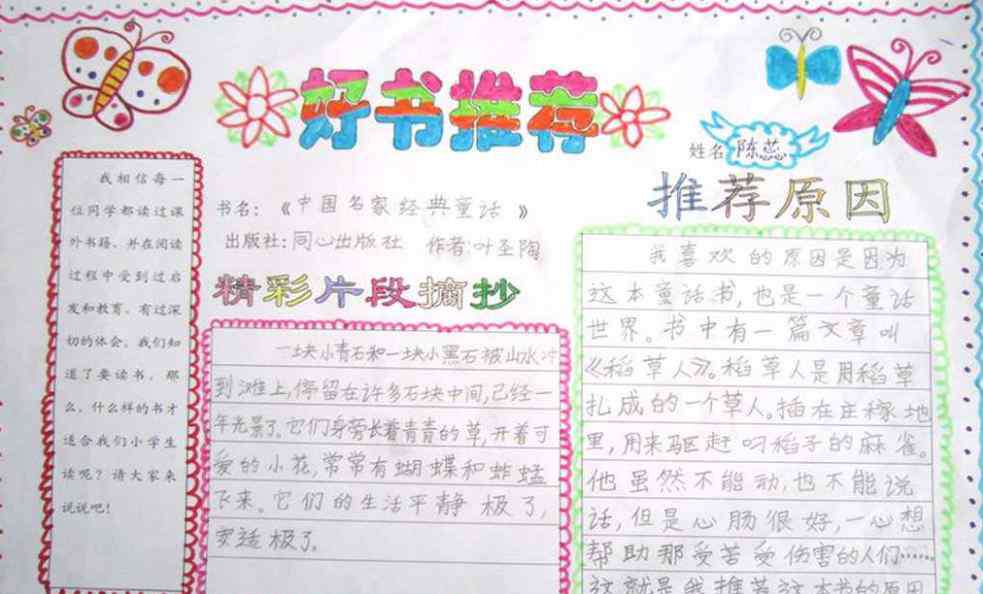 好书推荐
姓名 陈蕊
我相信每一
位同学都读过课
外书籍、并在阅读
过程中受到过启
发和教育、有过深
切的体会。我们知
道了要读书。那
么、什么样的书才
适合我们小学生
读呢？请大家来
说说吧！
书名：《中国名家经典童话》
出版社：同心出版社 作者：叶圣陶
精彩片段摘抄
一块小青石和一块小黑石被山水冲
到滩上,停留在许多石块中间,已经一
年光景了。它们身旁长着青青的草,开着可
爱的小花,常常有蝴蝶和蚱蜢
飞来。它们的生活平静极了,
适极了。
推荐原因
我喜欢的原因是因为
这本童话书,也是一个童话
世界。书中有一篇文章叫
《稻草人》。稻草人是用稻草
扎成的一个草人。插在庄稼地
里,用来驱赶叼稻子的麻雀。
他虽然不能动,也不能说
话,但是心肠很好,一心想
帮助那受苦受伤害的人们……
这就是我推荐这本书的原因